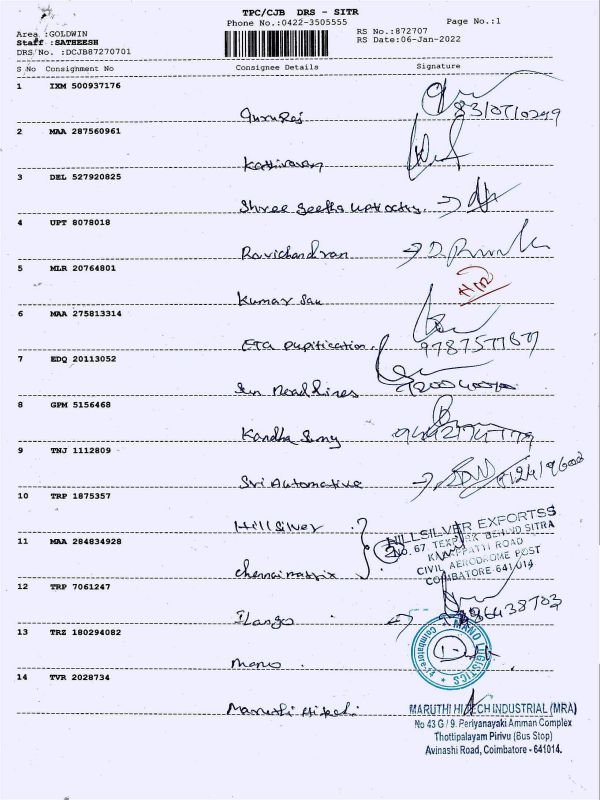 TPC/CJB DRS - SITR
Phone No.:0422-3505555
Page No.:1
Area :GOLDWIN
Staff :SATHEESH
DRS/No. :DCJB87270701
RS No.:872707
RS Date:06-Jan-2022
S No Consignment No Consignee Details Signature
1 IXM 500937176
Gururaj
2 MAA 287560961
Kathiravan
3 DEL 527920825
Shree Seetha
4 UPT 8078018
Ravichandran
5 MLR 20764801
Kumar
6 MAA 275813314
ETA
7 EDQ 20113052
Roadlines
8 GPM 5156468
Kandha
9 TNJ 1112809
Sri Automative
10 TRP 1875357
Hillsilver
11 MAA 284834928
HILLSILVER EXPORTSS
NO. 67, BEHIND SITRA
ROAD
CIVIL AERODROME POST
COIMBATORE 641 014
12 TRP 7061247
Ilango
13 TRZ 180294082
Mano
MANO LOGISTICS
Coimbatore-14
14 TVR 2028734
Maruthi Hitech
MARUTHI HITECH INDUSTRIAL (MRA)
No 43 G / 9. Periyanayaki Amman Complex
Thottipalayam Pirivu (Bus Stop)
Avinashi Road, Coimbatore - 641014.